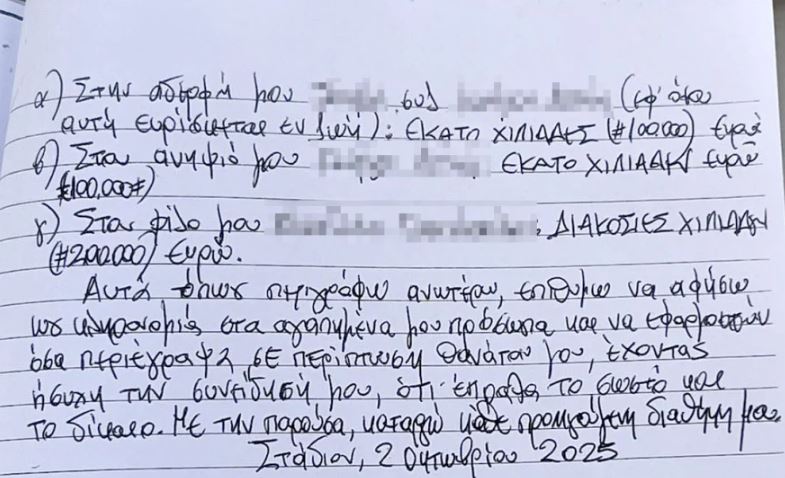 α) Στην αδερφή μου συζ (εφ' όσον
αυτή ευρίσκεται εν ζωή): ΕΚΑΤΟ ΧΙΛΙΑΔΕΣ (#100000) Ευρώ
β) Στον ανηψιό μου ΕΚΑΤΟ ΧΙΛΙΑΔΕΣ Ευρώ
#100,000#)
γ) Στον φίλο μου , ΔΙΑΚΟΣΙΕΣ ΧΙΛΙΑΔΕΣ
(#200.000) Ευρώ.
Αυτά όπως περιγράφω ανωτέρω, επιθυμώ να αφήσω
ως κληρονομιά στα αγαπημένα μου πρόσωπα και να εφαρμοστούν
όσα περιέγραψα, σε περίπτωση θανάτου μου, έχοντας
ήσυχη την συνείδησή μου, ότι έπραξα το σωστό και
το δίκαιο. Με την παρούσα, καταργώ κάθε προηγούμενη διαθήκη μου.
Στάδιον, 2 Οκτωβρίου 2025